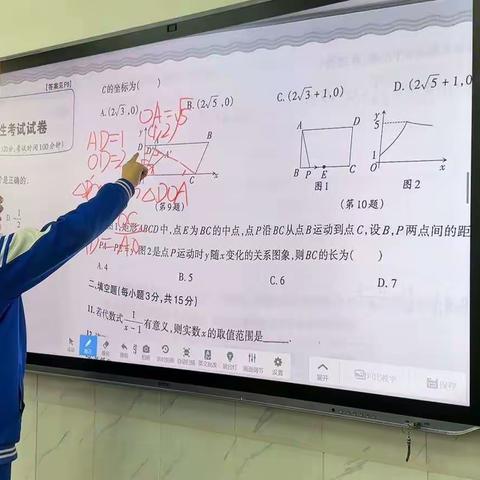 【答案见P9】
C的坐标为( )
A.(2√3,0)
B.(2√5,0)
C.(2√3+1,0)
D.(2√5+1,0
生考试试卷
考试时间100分钟)
OA=√5
(1,2)
AD=1
OD=2
△DOA
(第9题)
图1
图2
(第10题)
矩形ABCD中,点E为BC的中点,点P沿BC从点B运动到点C,设B,P两点间的距
图2是点P运动时y随x变化的关系图象,则BC的长为( )
A.4
B.5
C.6
D.7
是正确的.
D.-1/2
二、填空题(每小题3分,共15分)
11.若代数式1/(x-1)有意义,则实数x的取值范围是____.
展开
设置